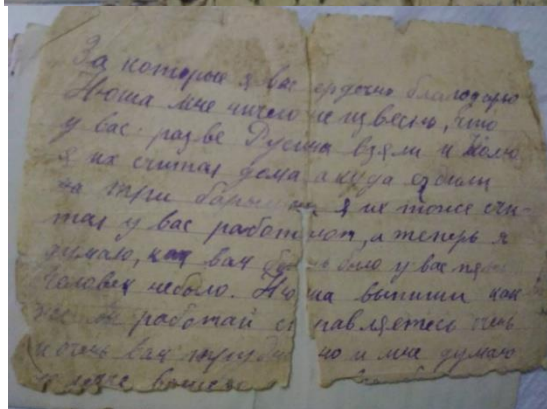 За которые я вас сердечно благодарю
Нюша мне ничего не извесно, что
у вас разве Русина взяли и Колю
я их считал дома а куда
на три я их тоже счи-
тал у вас работают, а теперь я
думаю, как вам было у вас
человек небыло. Нюша выпиши как
же вы работай справляетесь очень
и очень вам трудно и мне думаю